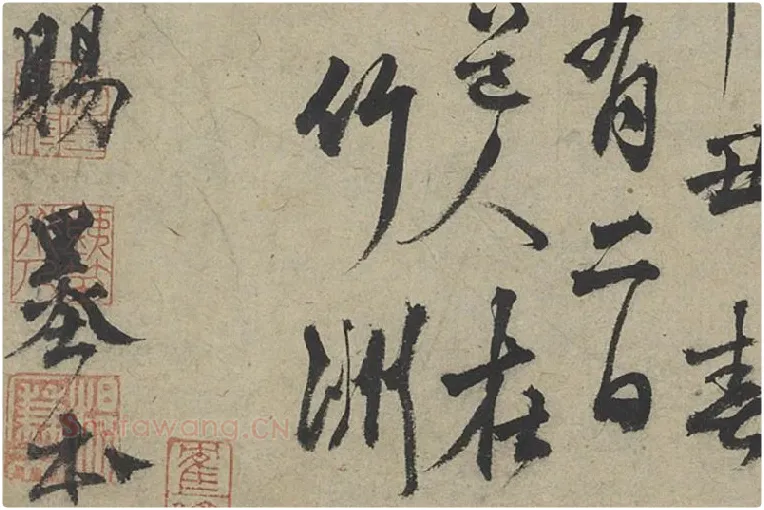 丑春
有二日
人在
竹洲
賜墨本
Shufawang.CN